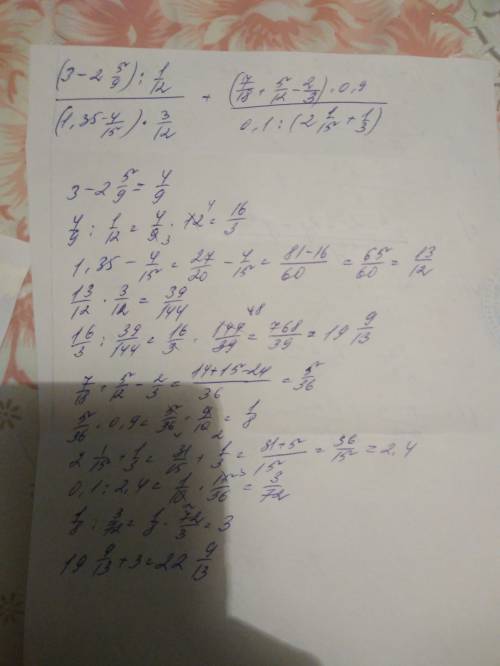 (3-2 5/9) : 1/12 / (1,35-4/15) · 3/12 + (7/18 + 5/12 - 2/3) · 0,9 / 0,1 : (2 1/15 + 1/3)
3-2 5/9 = 4/9
4/9 : 1/12 = 4/9 3 · 12 4 = 16/3
1,35 - 4/15 = 27/20 - 4/15 = 81-16/60 = 65/60 = 13/12
13/12 · 3/12 = 39/144
16/3 : 39/144 = 16/3 · 144 48/39 = 768/39 = 19 9/13
7/18 + 5/12 - 2/3 = 14+15-24/36 = 5/36
5/36 · 0,9 = 5/36 4 · 9/10 2 = 1/8
2 1/15 + 1/3 = 31/15 + 1/3 = 31+5/15 = 36/15 = 2,4
0,1 : 2,4 = 1/10 · 15 3/36 = 3/72
1/8 : 3/72 = 1/8 · 72/3 = 3
19 9/13 + 3 = 22 9/13